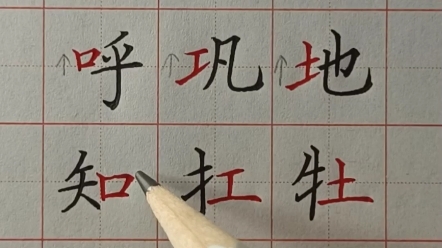 呼巩地
知扛牡